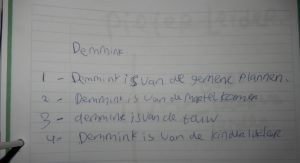 Demmink
1 - Demmink is van de gemene plannen.
2 - Demmink is van de martel kamer
3 - demmink is van de touw
4 - Demmink is van de kinder